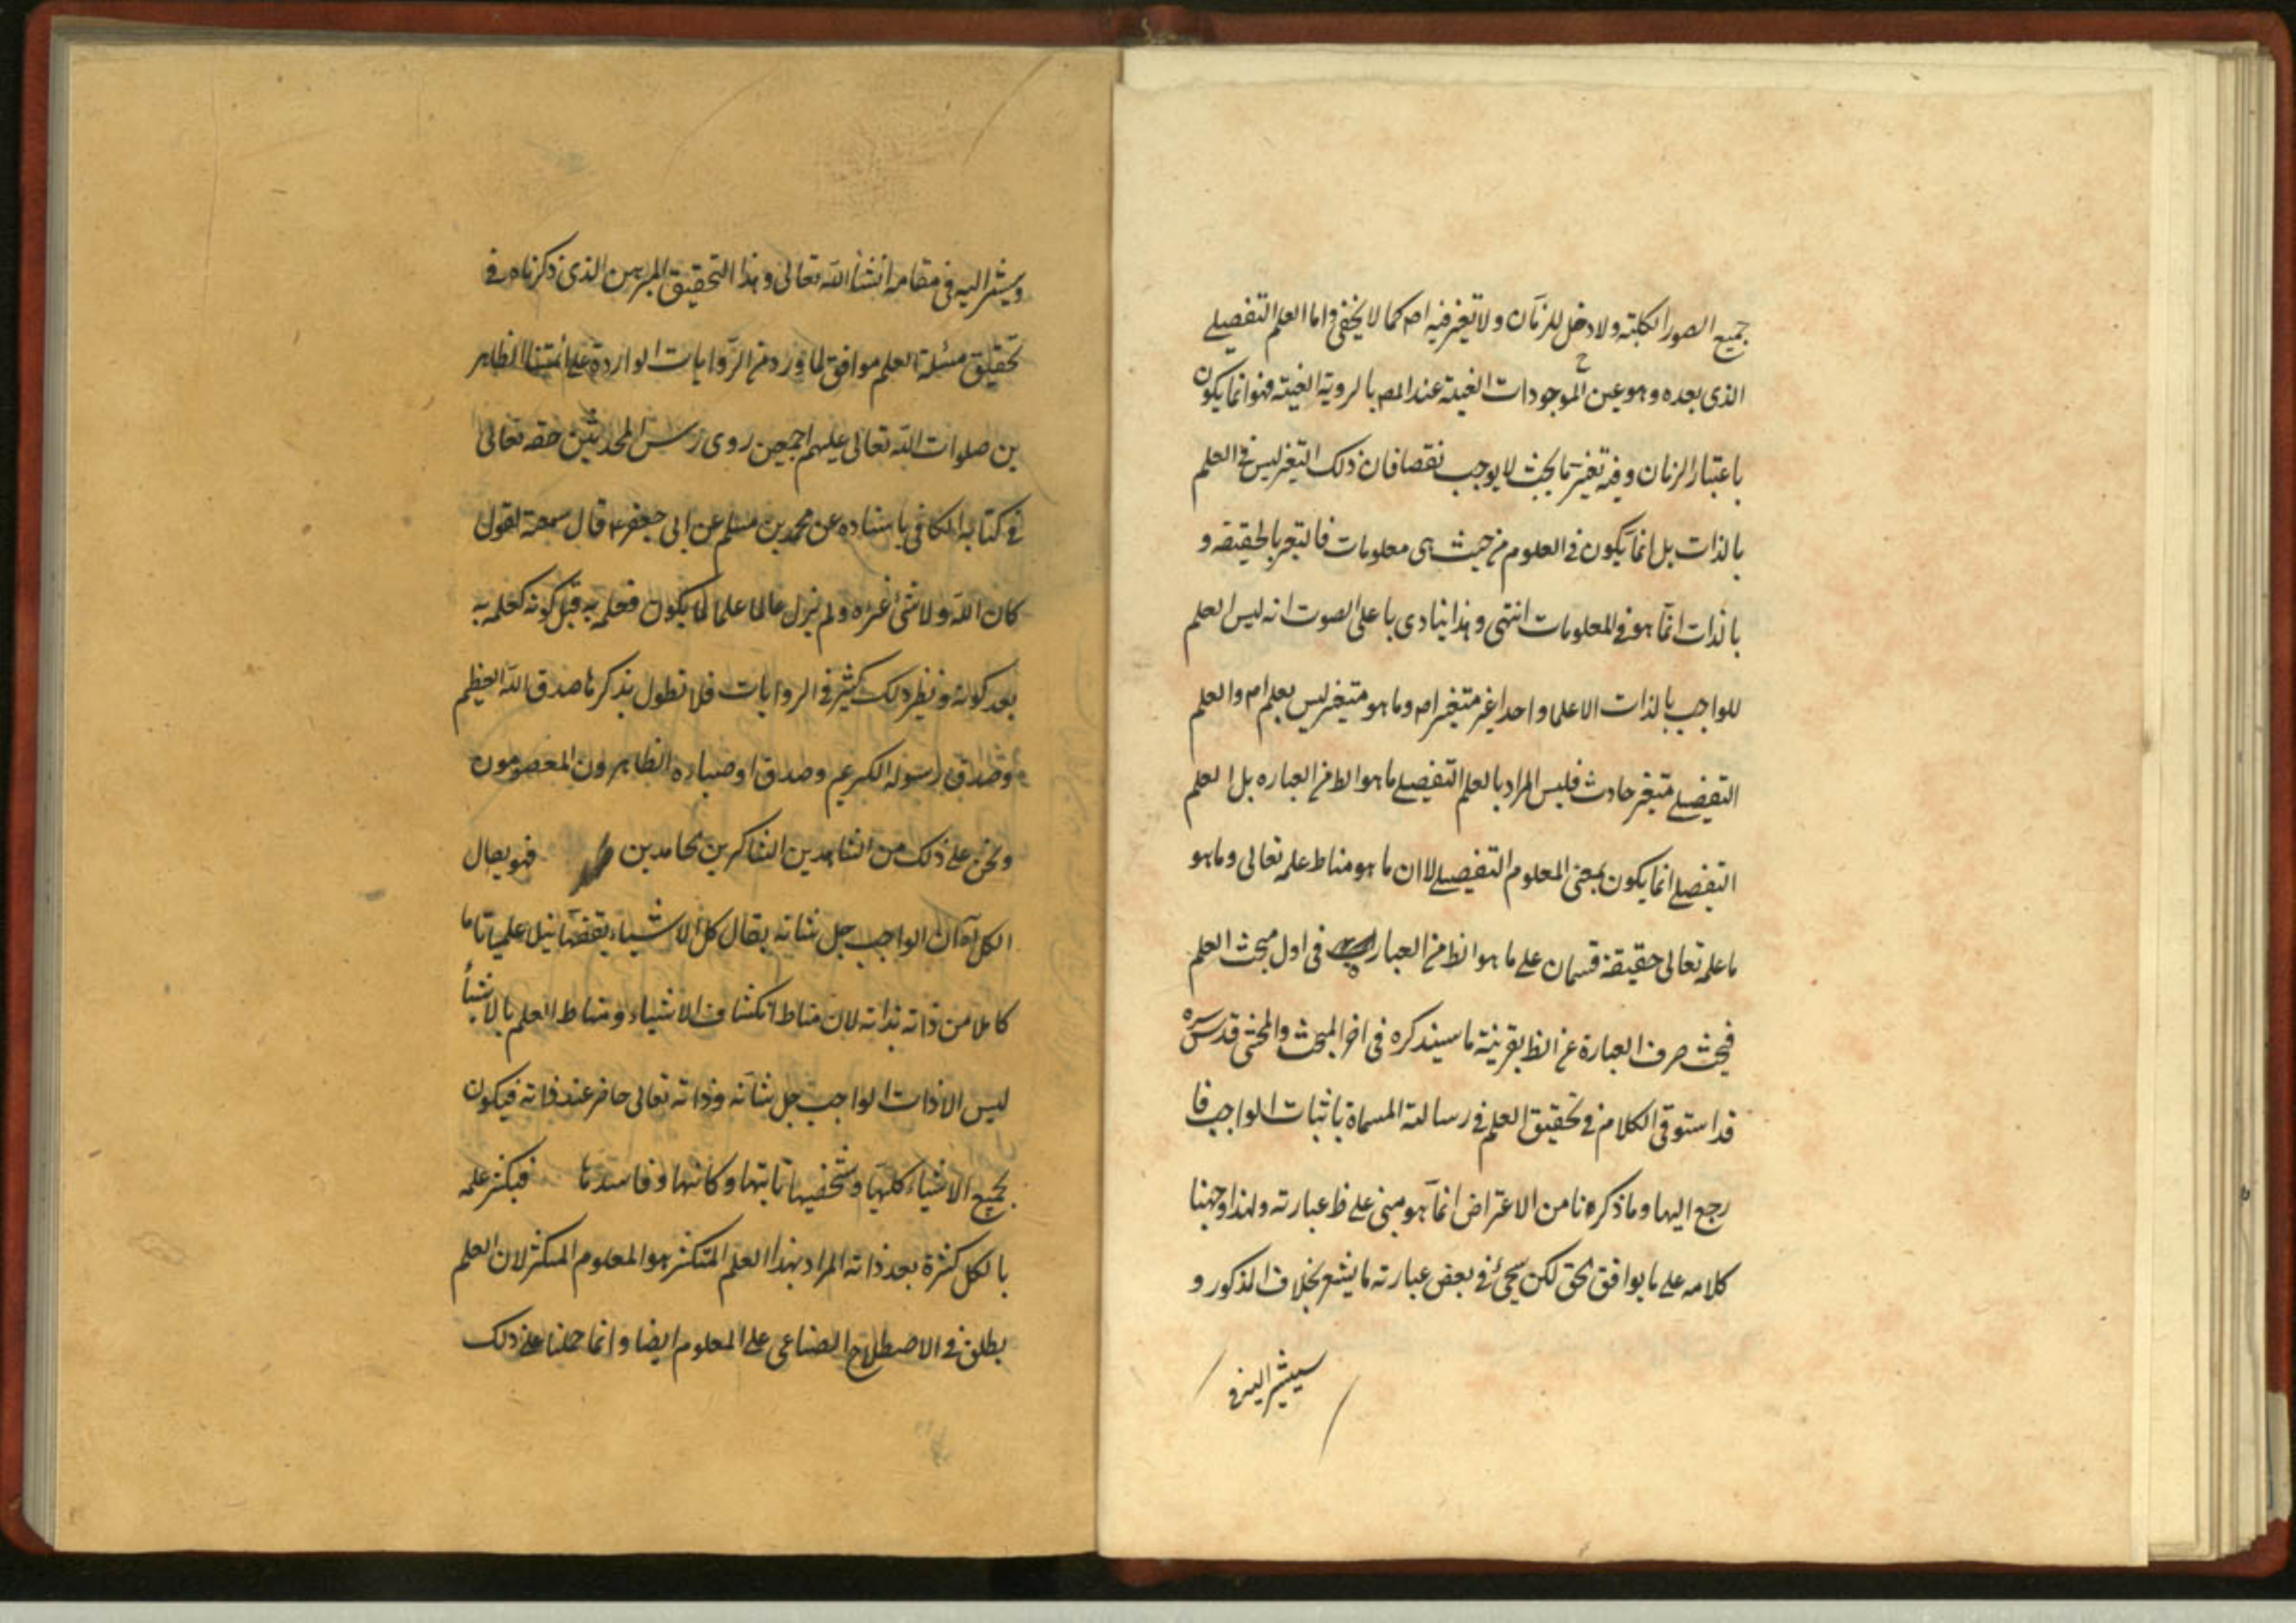 جميع الصور الكلية ولا دخل للزمان ولا تغير فيه اصر كما لا يخفى واما العلم التفصيلے
الذى بعده وهو عين الموجودات العينية عند المص بالروية العينية فهو انما يكون
باعتبار الزمان وفيه تغير ما بحيث لا يوجب نقصا فان ذلك التغير ليس في العلم
بالذات بل انما يكون في العلوم من حيث هى معلومات فالتغير بالحقيقه و
بالذات انما هو في المعلومات انتهى وهذا ينادى باعلى الصوت انه ليس العلم
للواجب بالذات الا علما واحدا غير متغير اصر وما هو متغير ليس بعلم اصر والعلم
التفصيلے متغير حادث فليس المراد بالعلم التفصيلے ما هو الظ من العباره بل العلم
التفصلے انما يكون بمعنى المعلوم التفصيلے لا ان ما هو مناط علمه تعالى وما هو
ما علمه تعالى حقيقة قسمان على ما هو الظ من العبارة فى اول مبحث العلم
فيجب صرف العبارة عن الظ بقرينة ما سيذكره فى اخر المبحث والمحشى قدس سره
قد استوفى الكلام في تحقيق العلم في رسالته المسماة باثبات الواجب فا
رجع اليها وما ذكرنا من الاعتراض انما هو مبنى على ظ عبارته ولهذا وجهنا
كلامه على ما يوافق الحق لكن سيجئ في بعض عبارته ما يشعر بخلاف المذكور و
سيشير اليه في
ويشير اليه فى مقامه انشأ الله تعالى وهذا التحقيق المبرهن الذى ذكرناه في
تحقيق مسئلة العلم موافق لما ورد من الروايات الواردة على ائمتنا الطاهر
ين صلوات الله تعالى عليهم اجمعين روى رئيس المحدثين حفه تعالى
في كتابه الكافى باسناده عن محمد بن مسلم عن ابى جعفر ع قال سمعته يقول
كان الله ولا شئ غيره ولم يزل عالما علما لما يكون فعلمه به قبل كونه كعلمه به
بعد كونه ونظير ذلك كثير في الروايات فلا نطول بذكرها صدق الله العظيم
وصدق رسوله الكريم وصدق اوصياؤه الطاهرون المعصومون
ونحن على ذلك من الشاهدين الشاكرين الحامدين فهو يصال
الكل اه ان الواجب جل شانه ينال كل الاشياء بعضها نيلا علميا تاما
كاملا من ذاته بذاته لان مناط انكشاف الاشياء ومناط العلم بالاشيأ
ليس الا ذات الواجب جل شأنه وذاته تعالى حاضر عند ذاته فيكون
بجميع الاشياء كليها وشخصيها ثابتها وكائنها وفاسدها فيكثر علمه
بالكل كثرة بعد ذاته المراد بهذا العلم المتكثر هو المعلوم المتكثر لان العلم
يطلق في الاصطلاح الصناعى على المعلوم ايضا وانما حملنا على ذلك